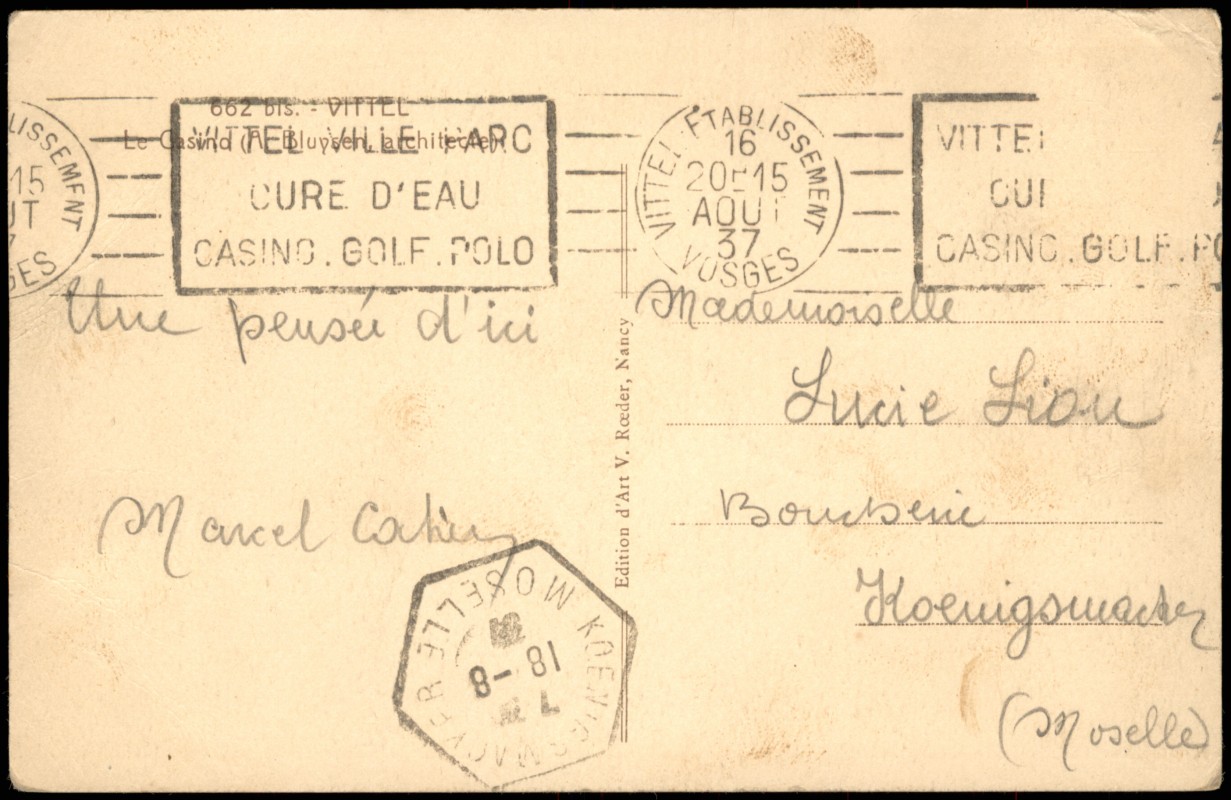 662 bis. - VITTEL
Le Casino (A. Bluysen, architecte).
LISSEMENT
15
UT
7
GES
VITTEL VILLE PARC
CURE D'EAU
CASINO.GOLF.POLO
VITTEL ETABLISSEMENT
16
20H15
AOUT
37
VOSGES
VITTEL
CUR
CASINO.GOLF.PO
Une pensée d'ici
Marcel
Edition d'Art V. Rœder, Nancy
Mademoiselle
Lucie Lion
Boucherie
Koenigsmacker
(Moselle)
KOENIGSMACKER MOSELLE
18-8